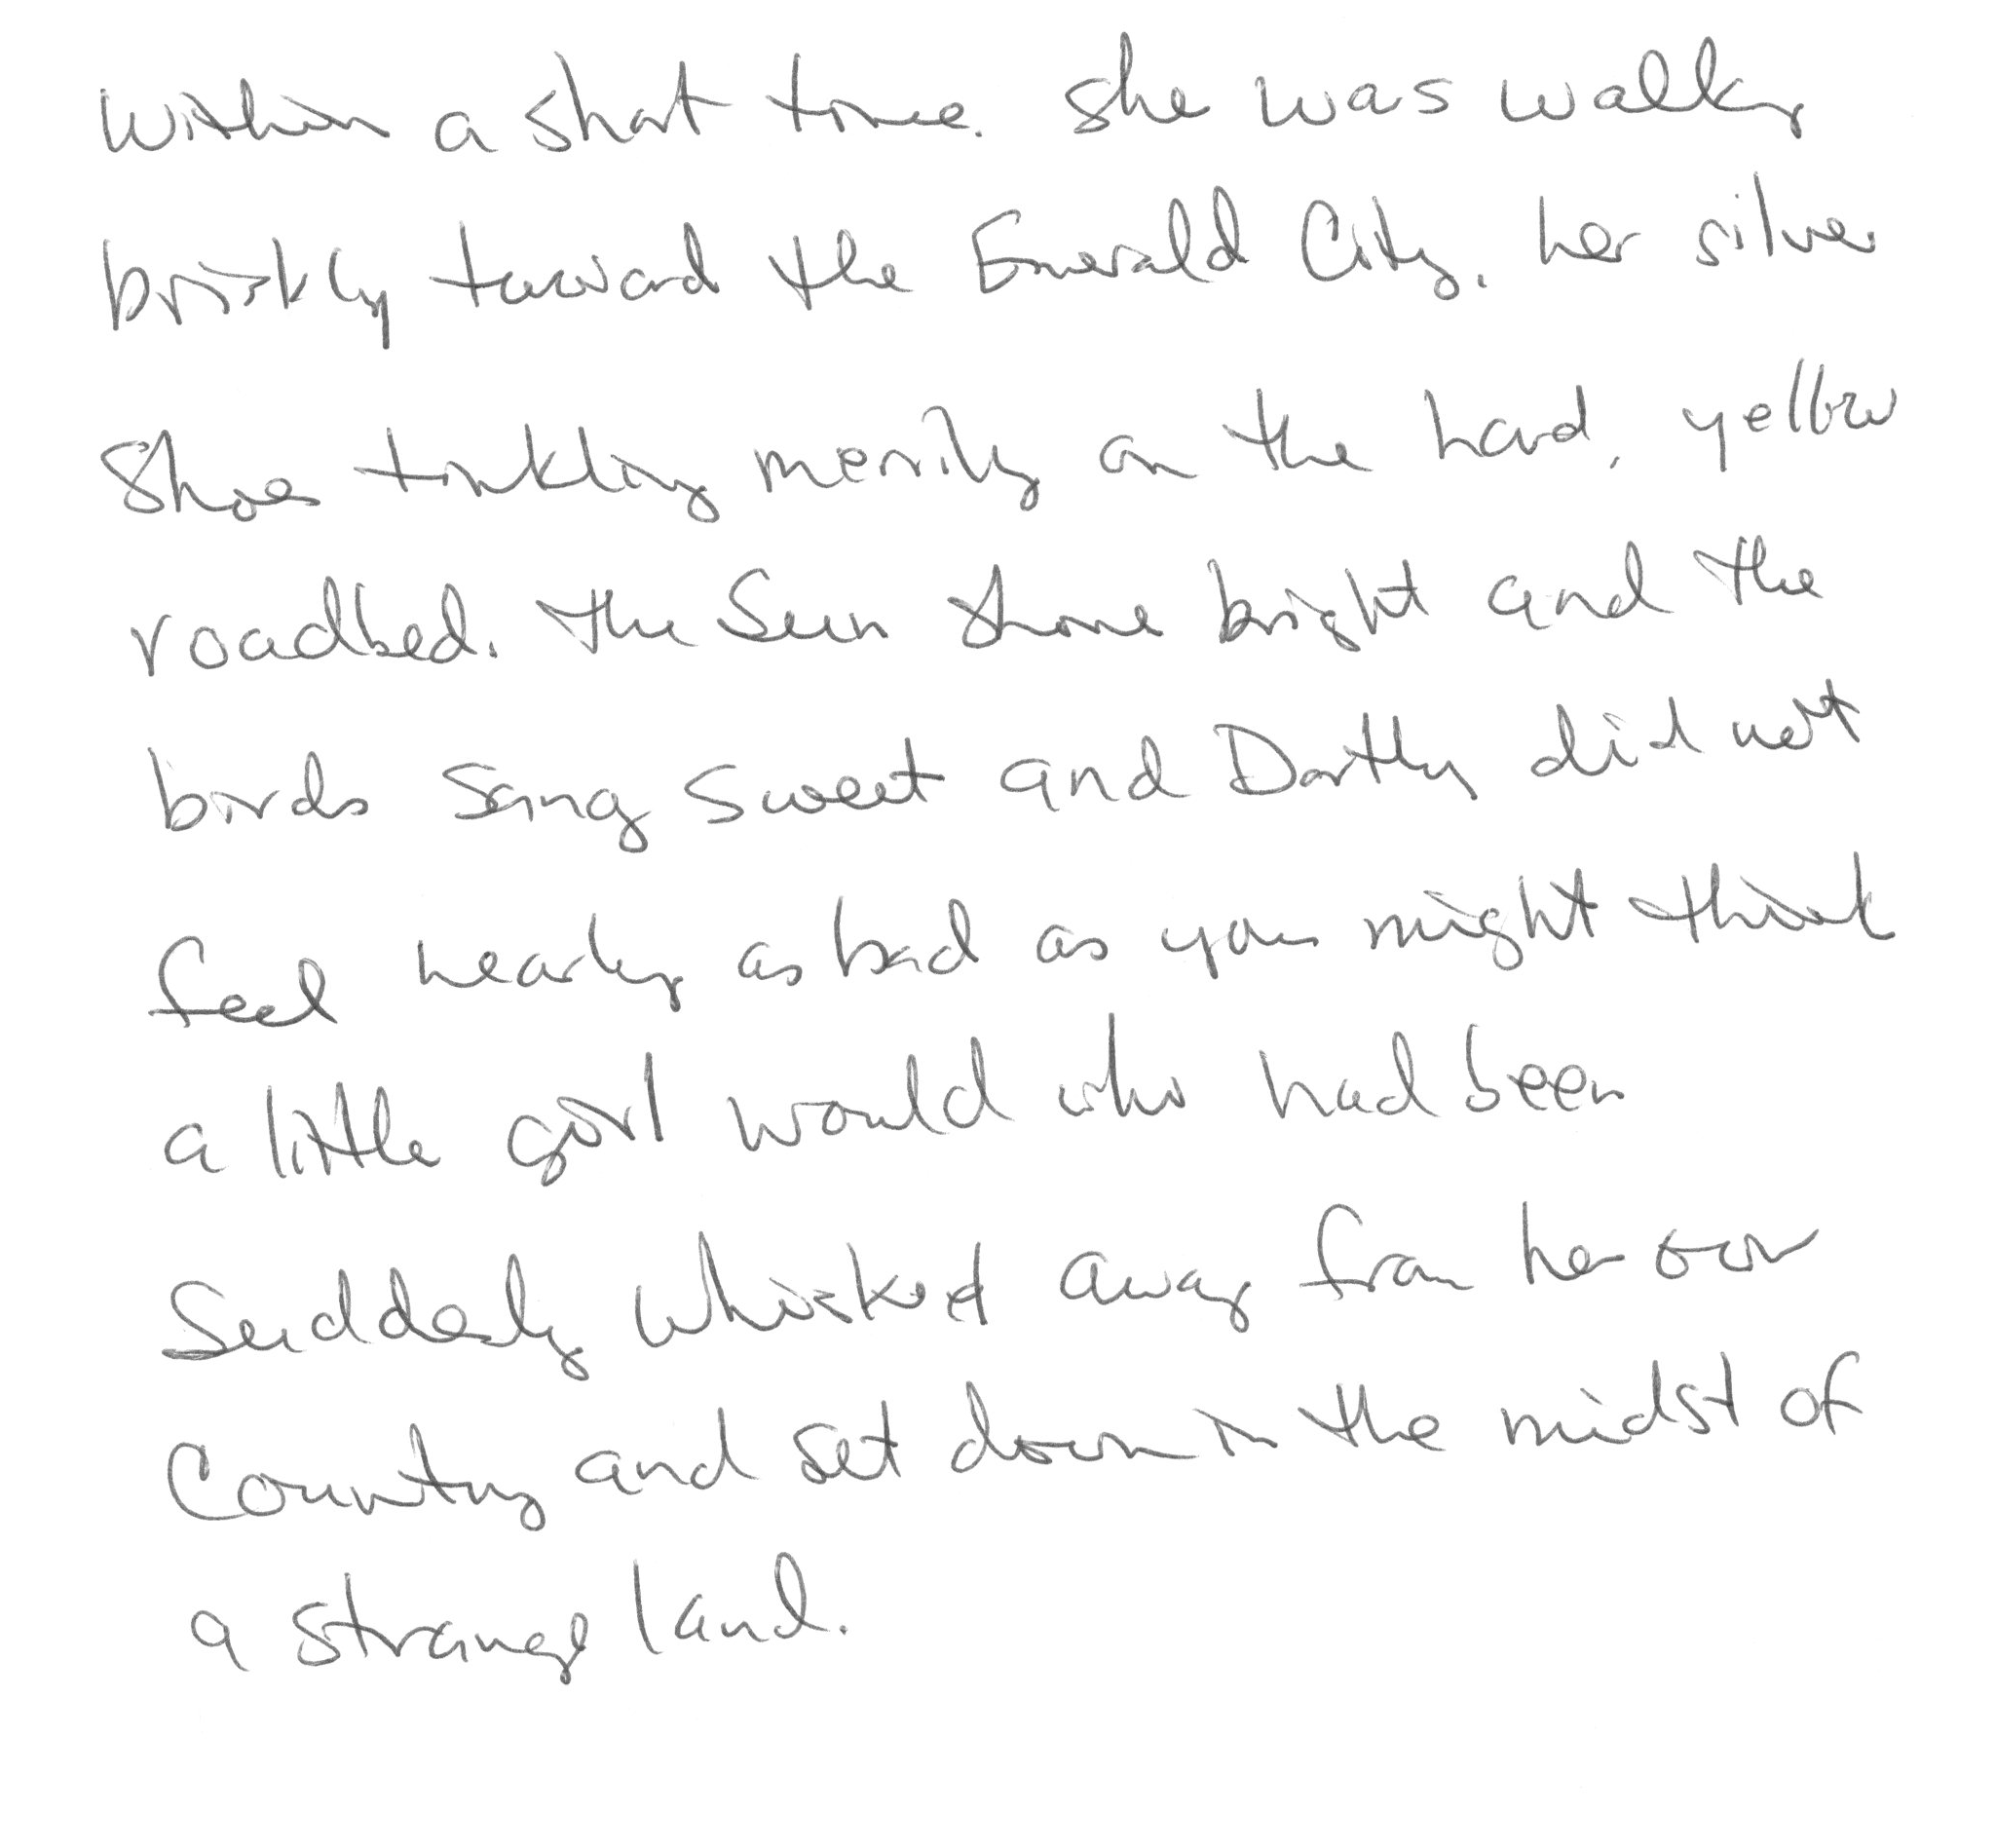 Within a short time. She was walking
briskly toward the Emerald City. her silver
Shoes tinkling merrily on the hard, yellow
roadbed. The Sun shone bright and the
birds sang sweet and Dorothy did not
feel nearly as bad as you might think
a little girl would who had been
Suddenly whisked away from her own
Country and set down in the midst of
a strange land.